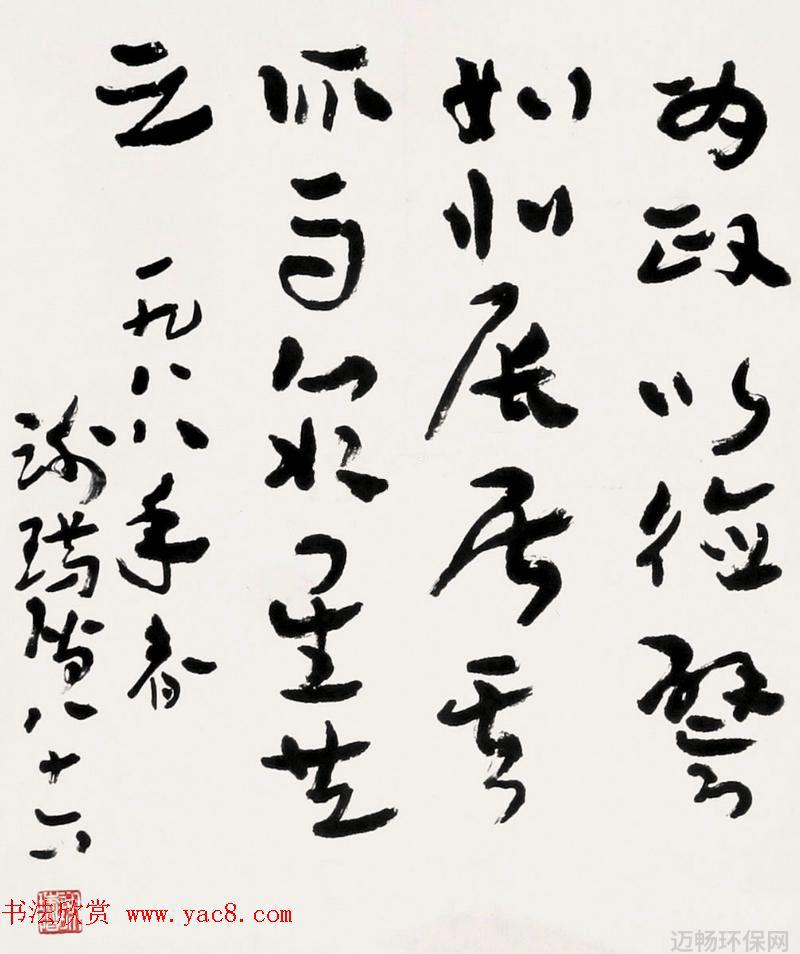 为政以德譬
如北辰居其
所而众星共
之
一九八八年春
谢瑞阶八十六
书法欣赏 www.yac8.com
迈畅环保网